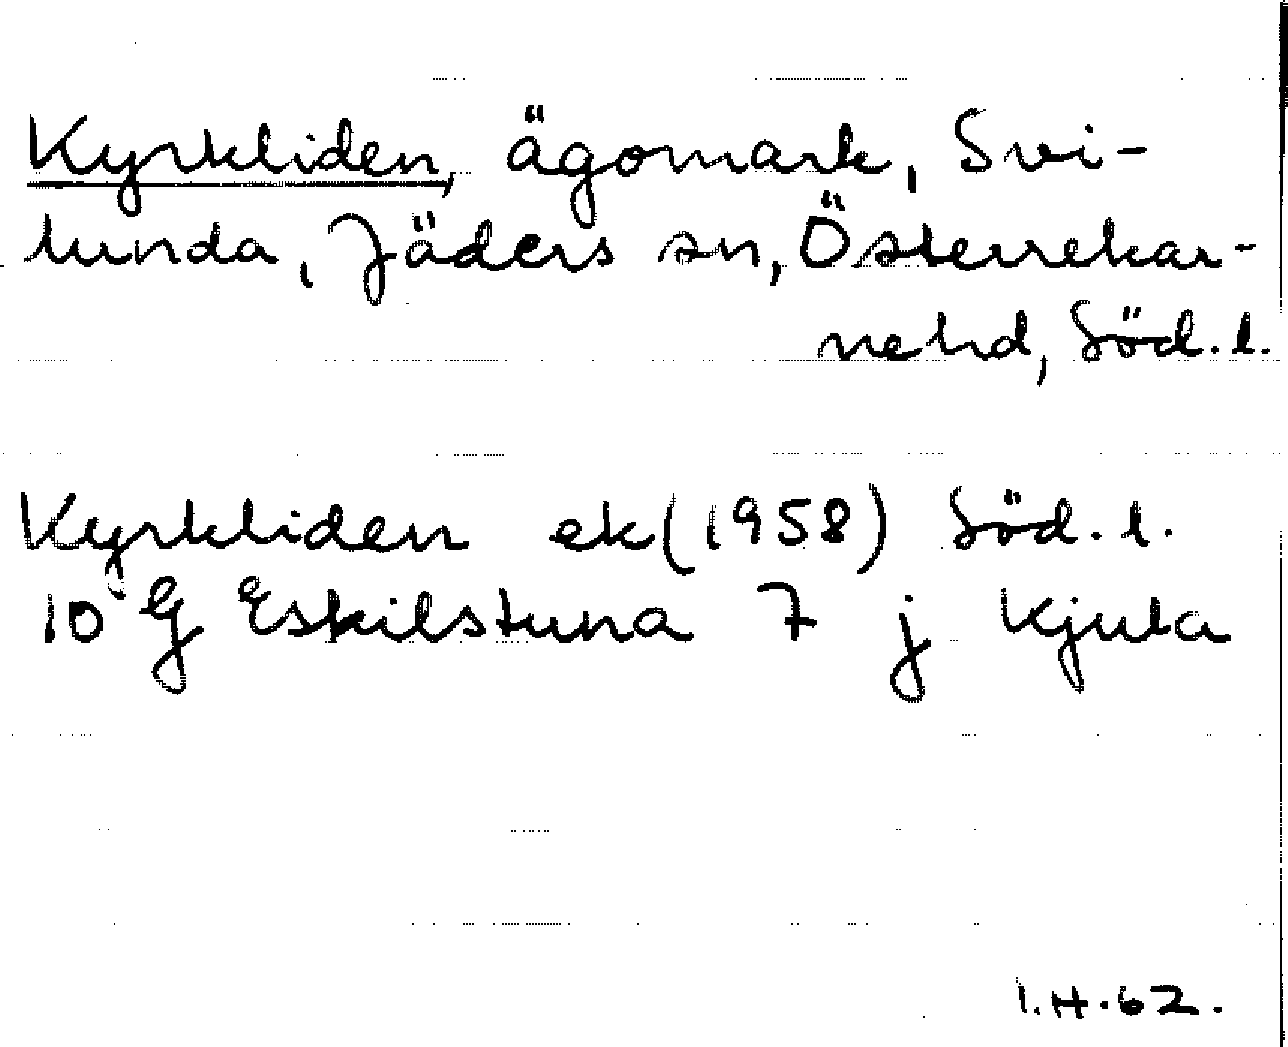 Kyrkliden, ägomark, Svi-
lunda, Jäders sn, Österrekar-
nehd, Söd. l.
Kyrkliden ek (1958) Söd. l.
10 G Eskilstuna 7 j Kjula
I.H. 62.